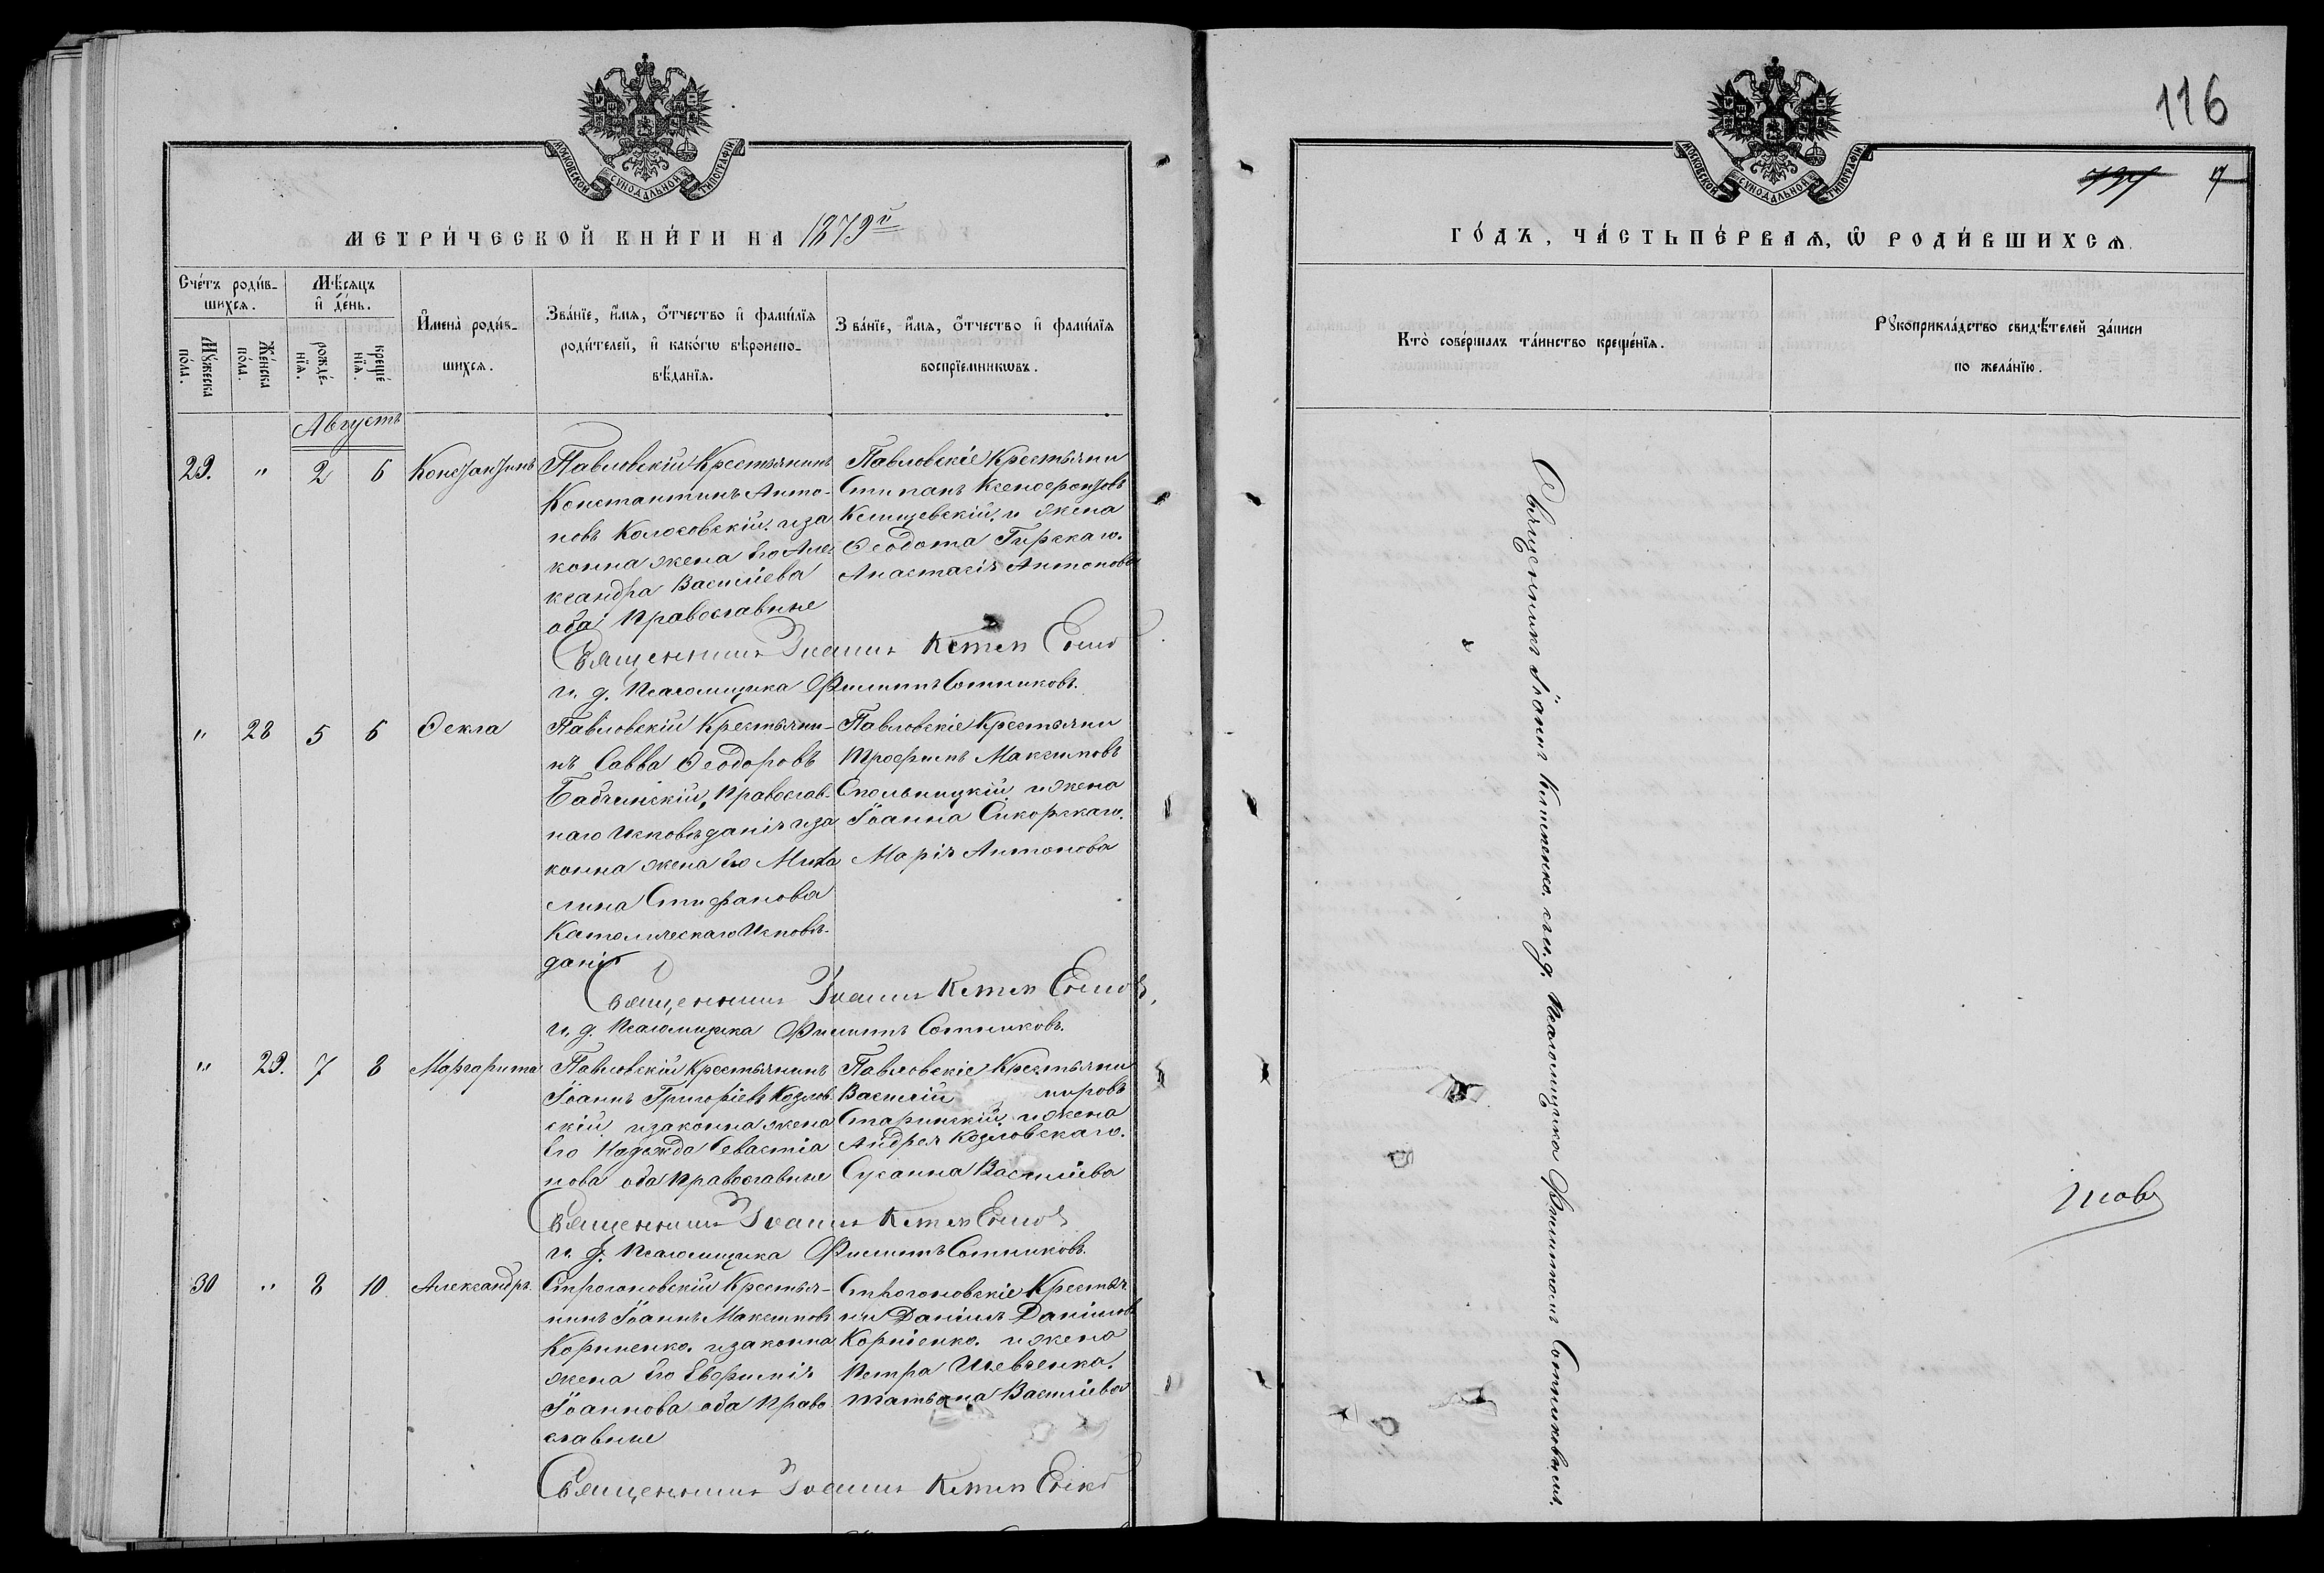 МОСКОВСКОЙ СѴНОДАЛЬНОЙ ТИПОГРАФІИ
МЕТРИ́ЧЕСКОЙ КНИ́ГИ НА 1879й
Сче́тъ роди́в-
шихсѧ.
Мѣ́сѧцъ
и҆ де́нь.
Мꙋ́жеска
по́ла.
Же́нска
по́ла.
рожде́-
нїѧ.
креще́
нїѧ.
И҆мена̀ роди́в-
шихсѧ.
Зва́нїе, и҆́мѧ, ѻ҆́тчество и҆ фами́лїѧ
роди́телей, и҆ како́гѡ вѣроиспо-
вѣ́данїѧ.
Зва́нїе, и҆́мѧ, ѻ҆́тчество и҆ фами́лїѧ
воспрїе́мникѡвъ.
Августъ
29. " 2 6 Константинъ
Павловскій Крестьянинъ
Константинъ Анто-
новъ Колосовскій. и за
конна жена его Але
ксандра Васильева
оба православные
Павловскіе Крестьяни
Стипанъ Ксенофонтовъ
и жена
Ѳеодота Гирскаго.
Анастасія Антонова
Священникъ Іоаннъ
и. д. Псаломщика Филиппъ Сотниковъ.
" 28 5 6 Ѳекла
Павловскій Крестьяни-
нъ Савва Ѳеодоровъ
православ-
наго Исповѣданія и за
конна жена его Миха
лина Стифанова
Католическаго Исповѣ-
данія
Павловскіе Крестьяни
Трофимъ Максимовъ
Опольницкій и жена
Іоанна Сикорскаго.
Марія Антонова
Священникъ Іоаннъ
и. д. Псаломщика Филиппъ Сотниковъ.
" 29. 7 8 Маргарита
Павловскій Крестьянинъ
Іоаннъ Григоріевъ Козлов
скій и законна жена
его Надежда Севастіа
нова оба православные
Павловскіе Крестьяни
Василій мировъ
Старинскій и жена
Андрея Козловскаго.
Сусанна Васильева
Священникъ Іоаннъ
и. д. Псаломщика Филиппъ Сотниковъ.
30 " 8 10 Александръ.
Строгоновскій Крестья-
нинъ Іоаннъ Максимовъ
Корниенко. и законна
жена его Евфимія
Іоаннова оба право
славные
Строгоновскіе Крестья
ни Даніилъ Даніиловъ
Корніенко. и жена
Петра Шевченка.
Татьяна Васильева
Священникъ Іоаннъ
116
МОСКОВСКОЙ СѴНОДАЛЬНОЙ ТИПОГРАФІИ
ГО́ДЪ, ЧА́СТЬ ПЕ́РВАѦ, Ѡ҆ РОДИ́ВШИХСѦ.
Кто̀ соверша́лъ та́инство креще́нїѧ.
Рꙋкоприкла́дство свидѣ́телей за́писи
по жела́нїю.
Священникъ Іоаннъ съ и. д. Псаломщика Филиппомъ Сотниковымъ.